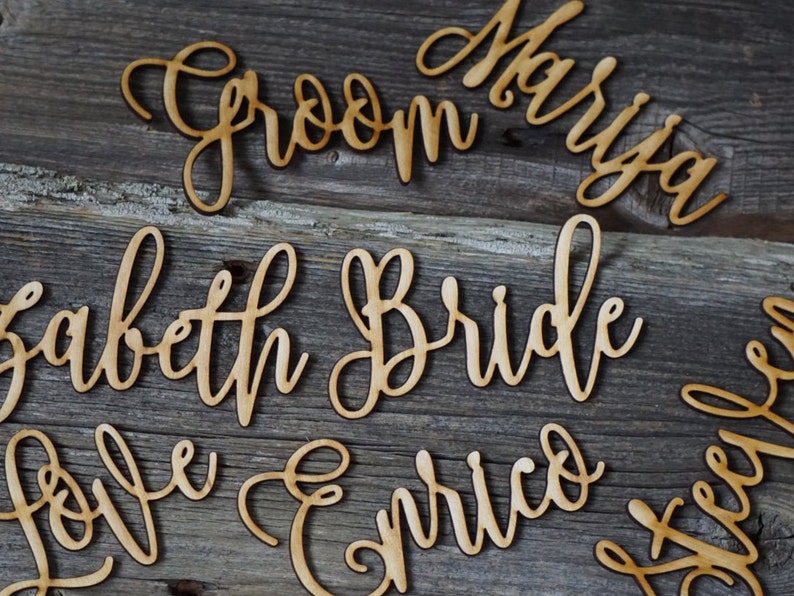 Groom
Marija
zabeth
Bride
Love
Enrico